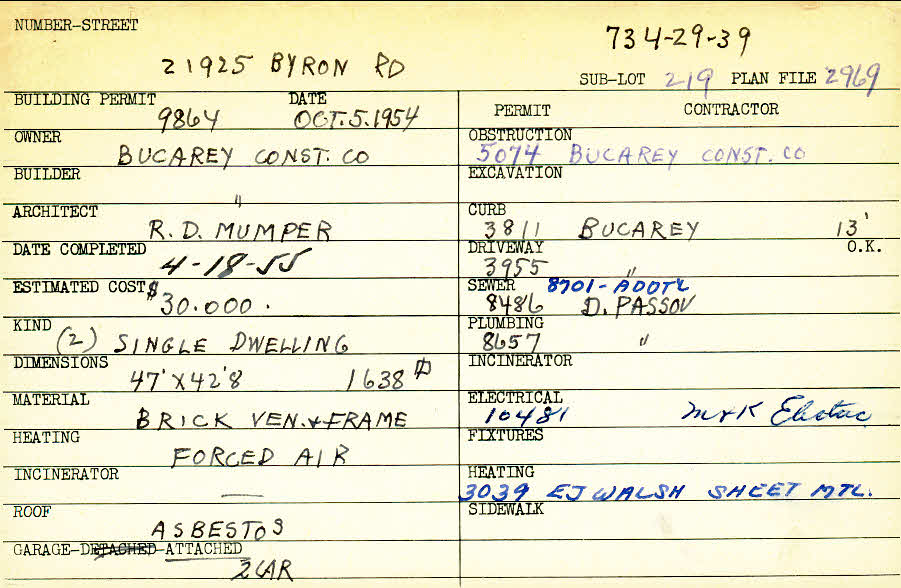 NUMBER-STREET
734-29-39
21925 BYRON RD
SUB-LOT 219 PLAN FILE 2969
BUILDING PERMIT DATE
9864 OCT.5.1954
OWNER
BUCAREY CONST. CO
BUILDER
"
ARCHITECT
R.D. MUMPER
DATE COMPLETED
4-18-55
ESTIMATED COST $
30.000.
KIND
(2) SINGLE DWELLING
DIMENSIONS
47' X 42'8 1638 ⌗
MATERIAL
BRICK VEN. + FRAME
HEATING
FORCED AIR
INCINERATOR
—
ROOF
ASBESTOS
GARAGE-DETACHED-ATTACHED
2 CAR
PERMIT CONTRACTOR
OBSTRUCTION
5074 BUCAREY CONST. CO
EXCAVATION
CURB
3811 BUCAREY 13'
DRIVEWAY O.K.
3955 "
SEWER 8701-ADDT'L
8486 D. PASSOV
PLUMBING
8657 "
INCINERATOR
ELECTRICAL
10481 M+K Electric
FIXTURES
HEATING
3039 EJ WALSH SHEET MTL.
SIDEWALK